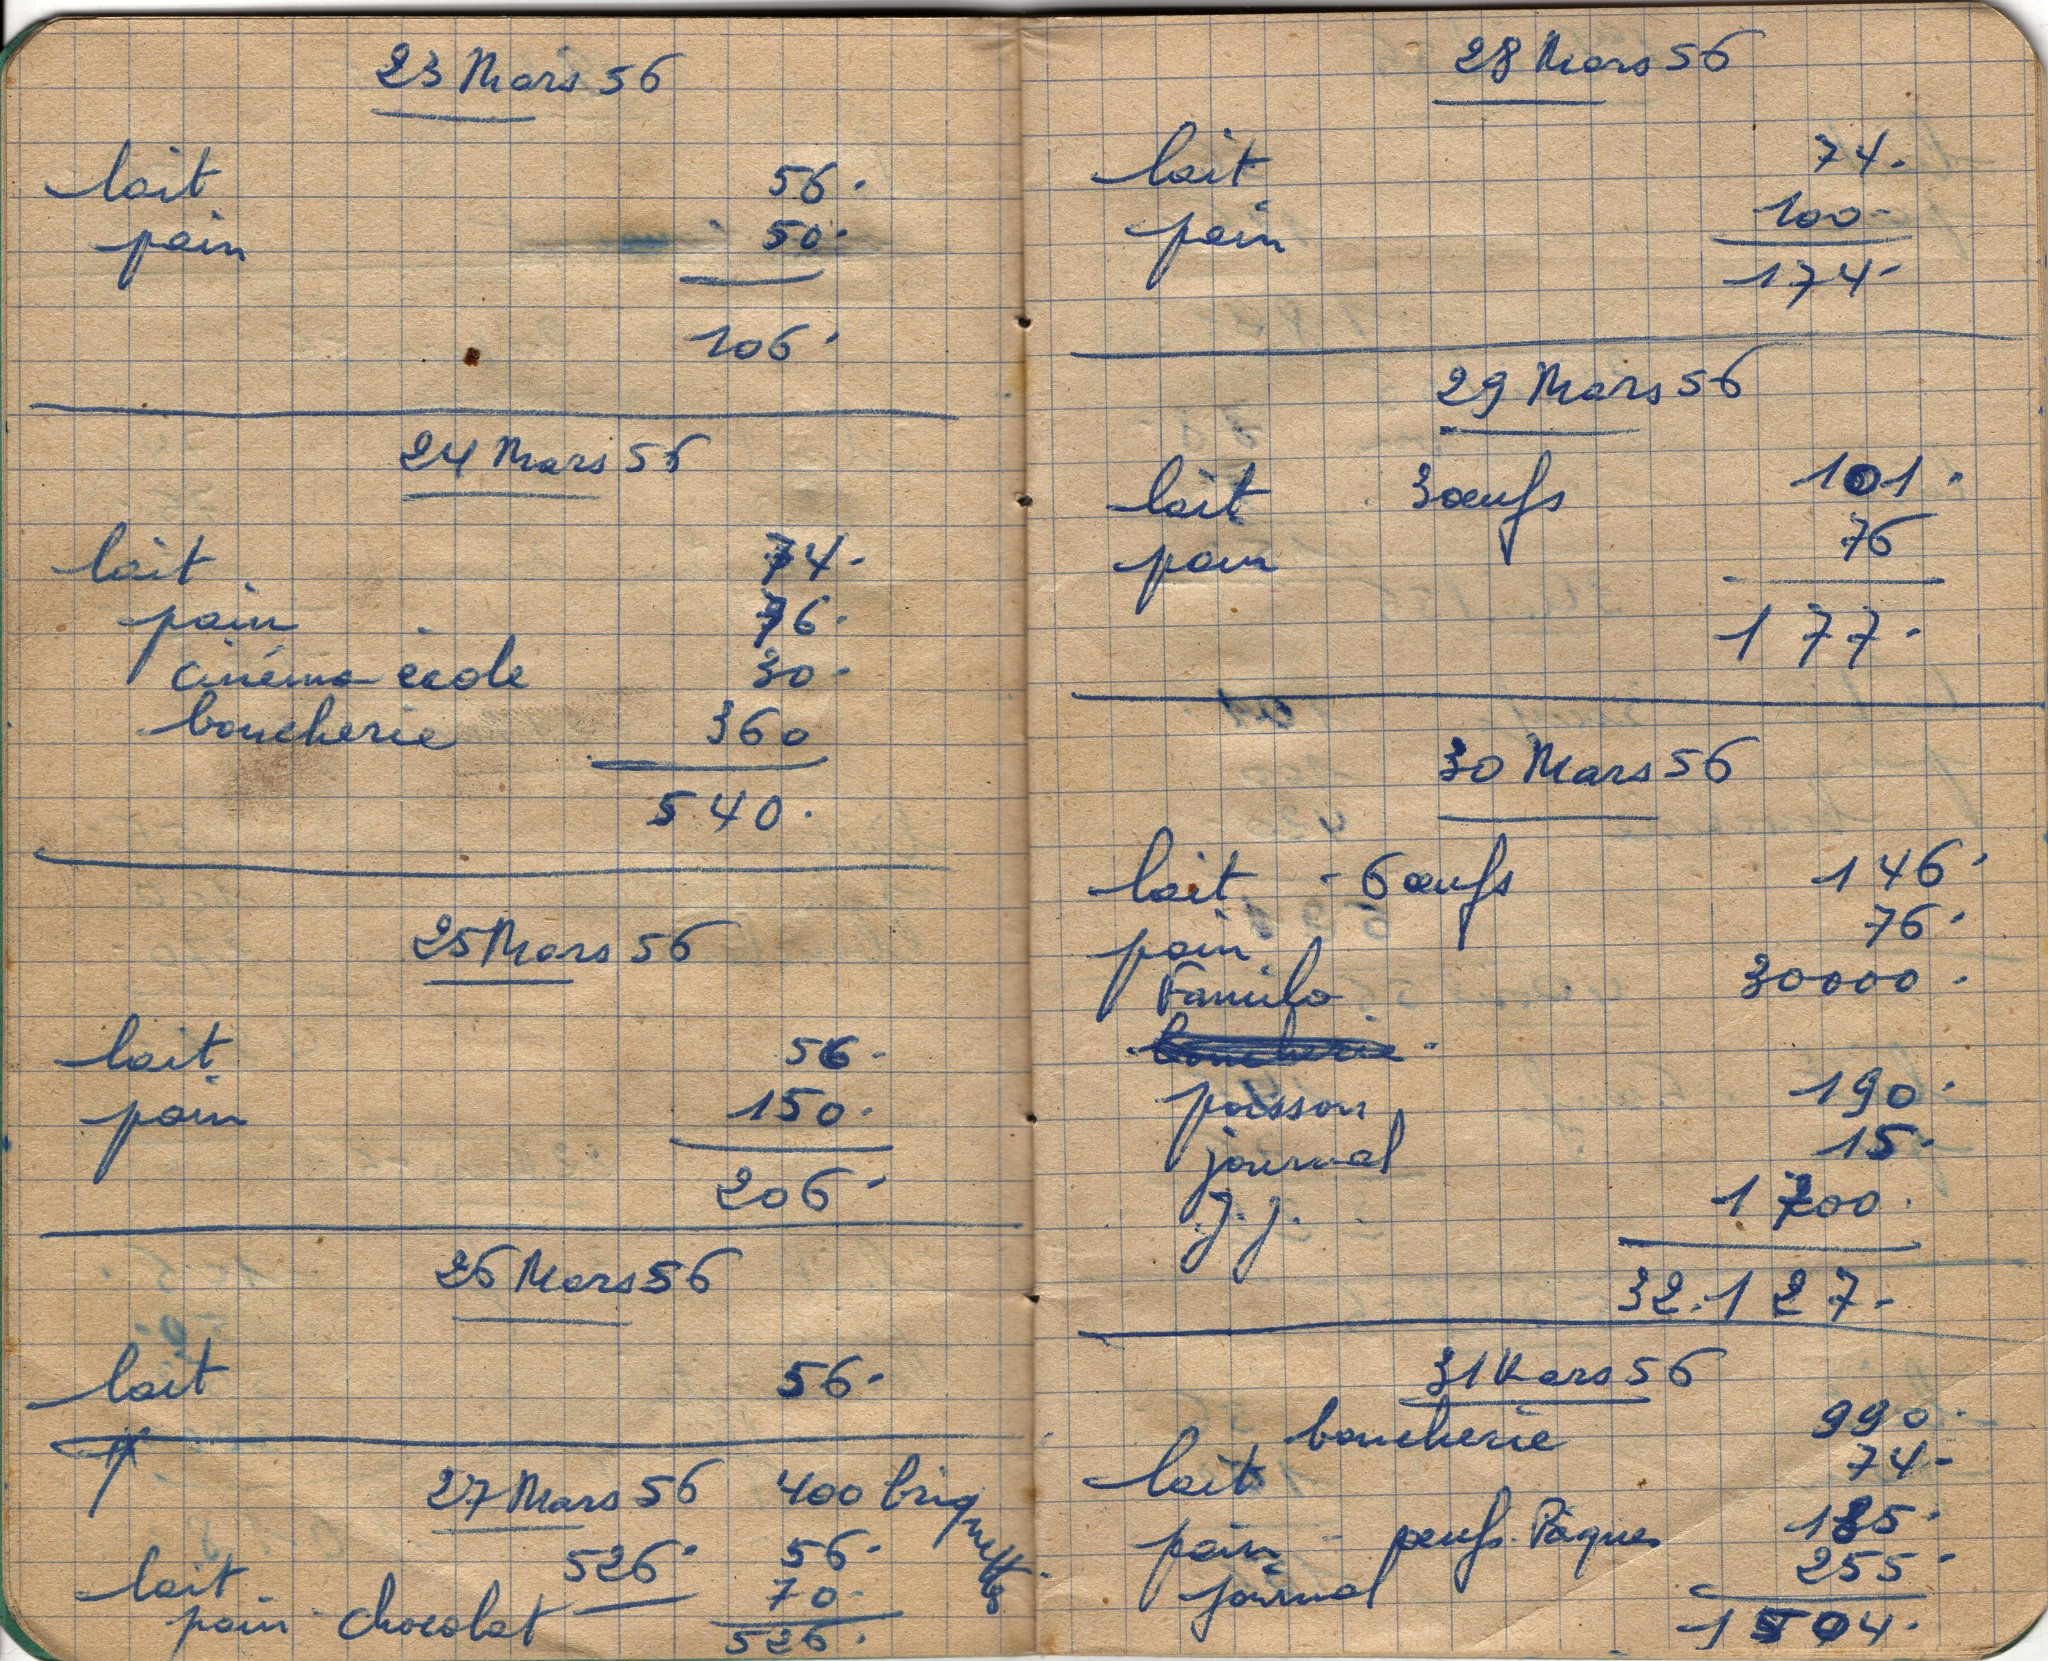 23 Mars 56
lait 56.
pain 50.
106.
24 Mars 56
lait 74.
pain 76.
cinéma école 30.
boucherie 360
540.
25 Mars 56
lait 56.
pain 150.
206.
26 Mars 56
lait 56.
27 Mars 56 400 briquettes
lait 526. 56.
pain chocolat 70.
526.
28 Mars 56
lait 74.
pain 100.
174.
29 Mars 56
lait 3 œufs 101.
pain 76
177.
30 Mars 56
lait - 6 œufs 146.
pain 76.
Familo 30000.
boucherie.
poisson 190.
journal 15.
j. j. 1700.
32.127.
31 Mars 56
boucherie 990.
lait 74.
pain œufs. Pâques 185.
journal 255.
1504.